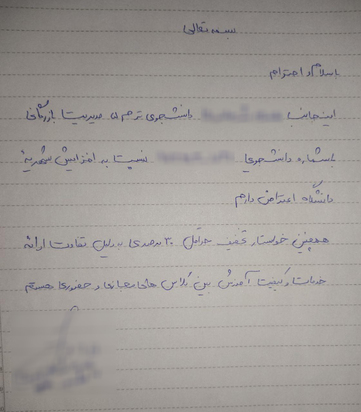 بسمه تعالی
باسلام و احترام
اینجانب دانشجوی ترم ۵ مدیریت بازرگانی
باشماره دانشجویی نسبت به افزایش شهریه
دانشگاه اعتراض دارم
همچنین خواستار تخفیف حداقل ۳۰ درصدی به دلیل تفاوت ارائه
خدمات و کیفیت آموزش بین کلاس های مجازی و حضوری هستم